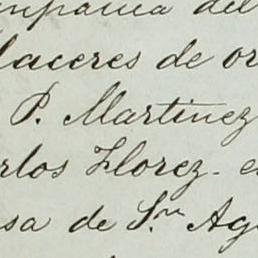 mpañia del
laceres de or
P. Martinez
rlos Florez - e
sa de S.ʳⁿ Ag